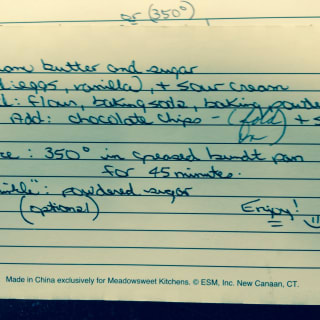 or (350°)
am butter and sugar
d: eggs, vanilla), + sour cream
d: flour, baking soda, baking powde
Add: chocolate chips - (fold in) + s
ke: 350° in greased bundt pan
for 45 minutes.
inkle": powdered sugar
(optional)
Enjoy!
Made in China exclusively for Meadowsweet Kitchens. © ESM, Inc. New Canaan, CT.